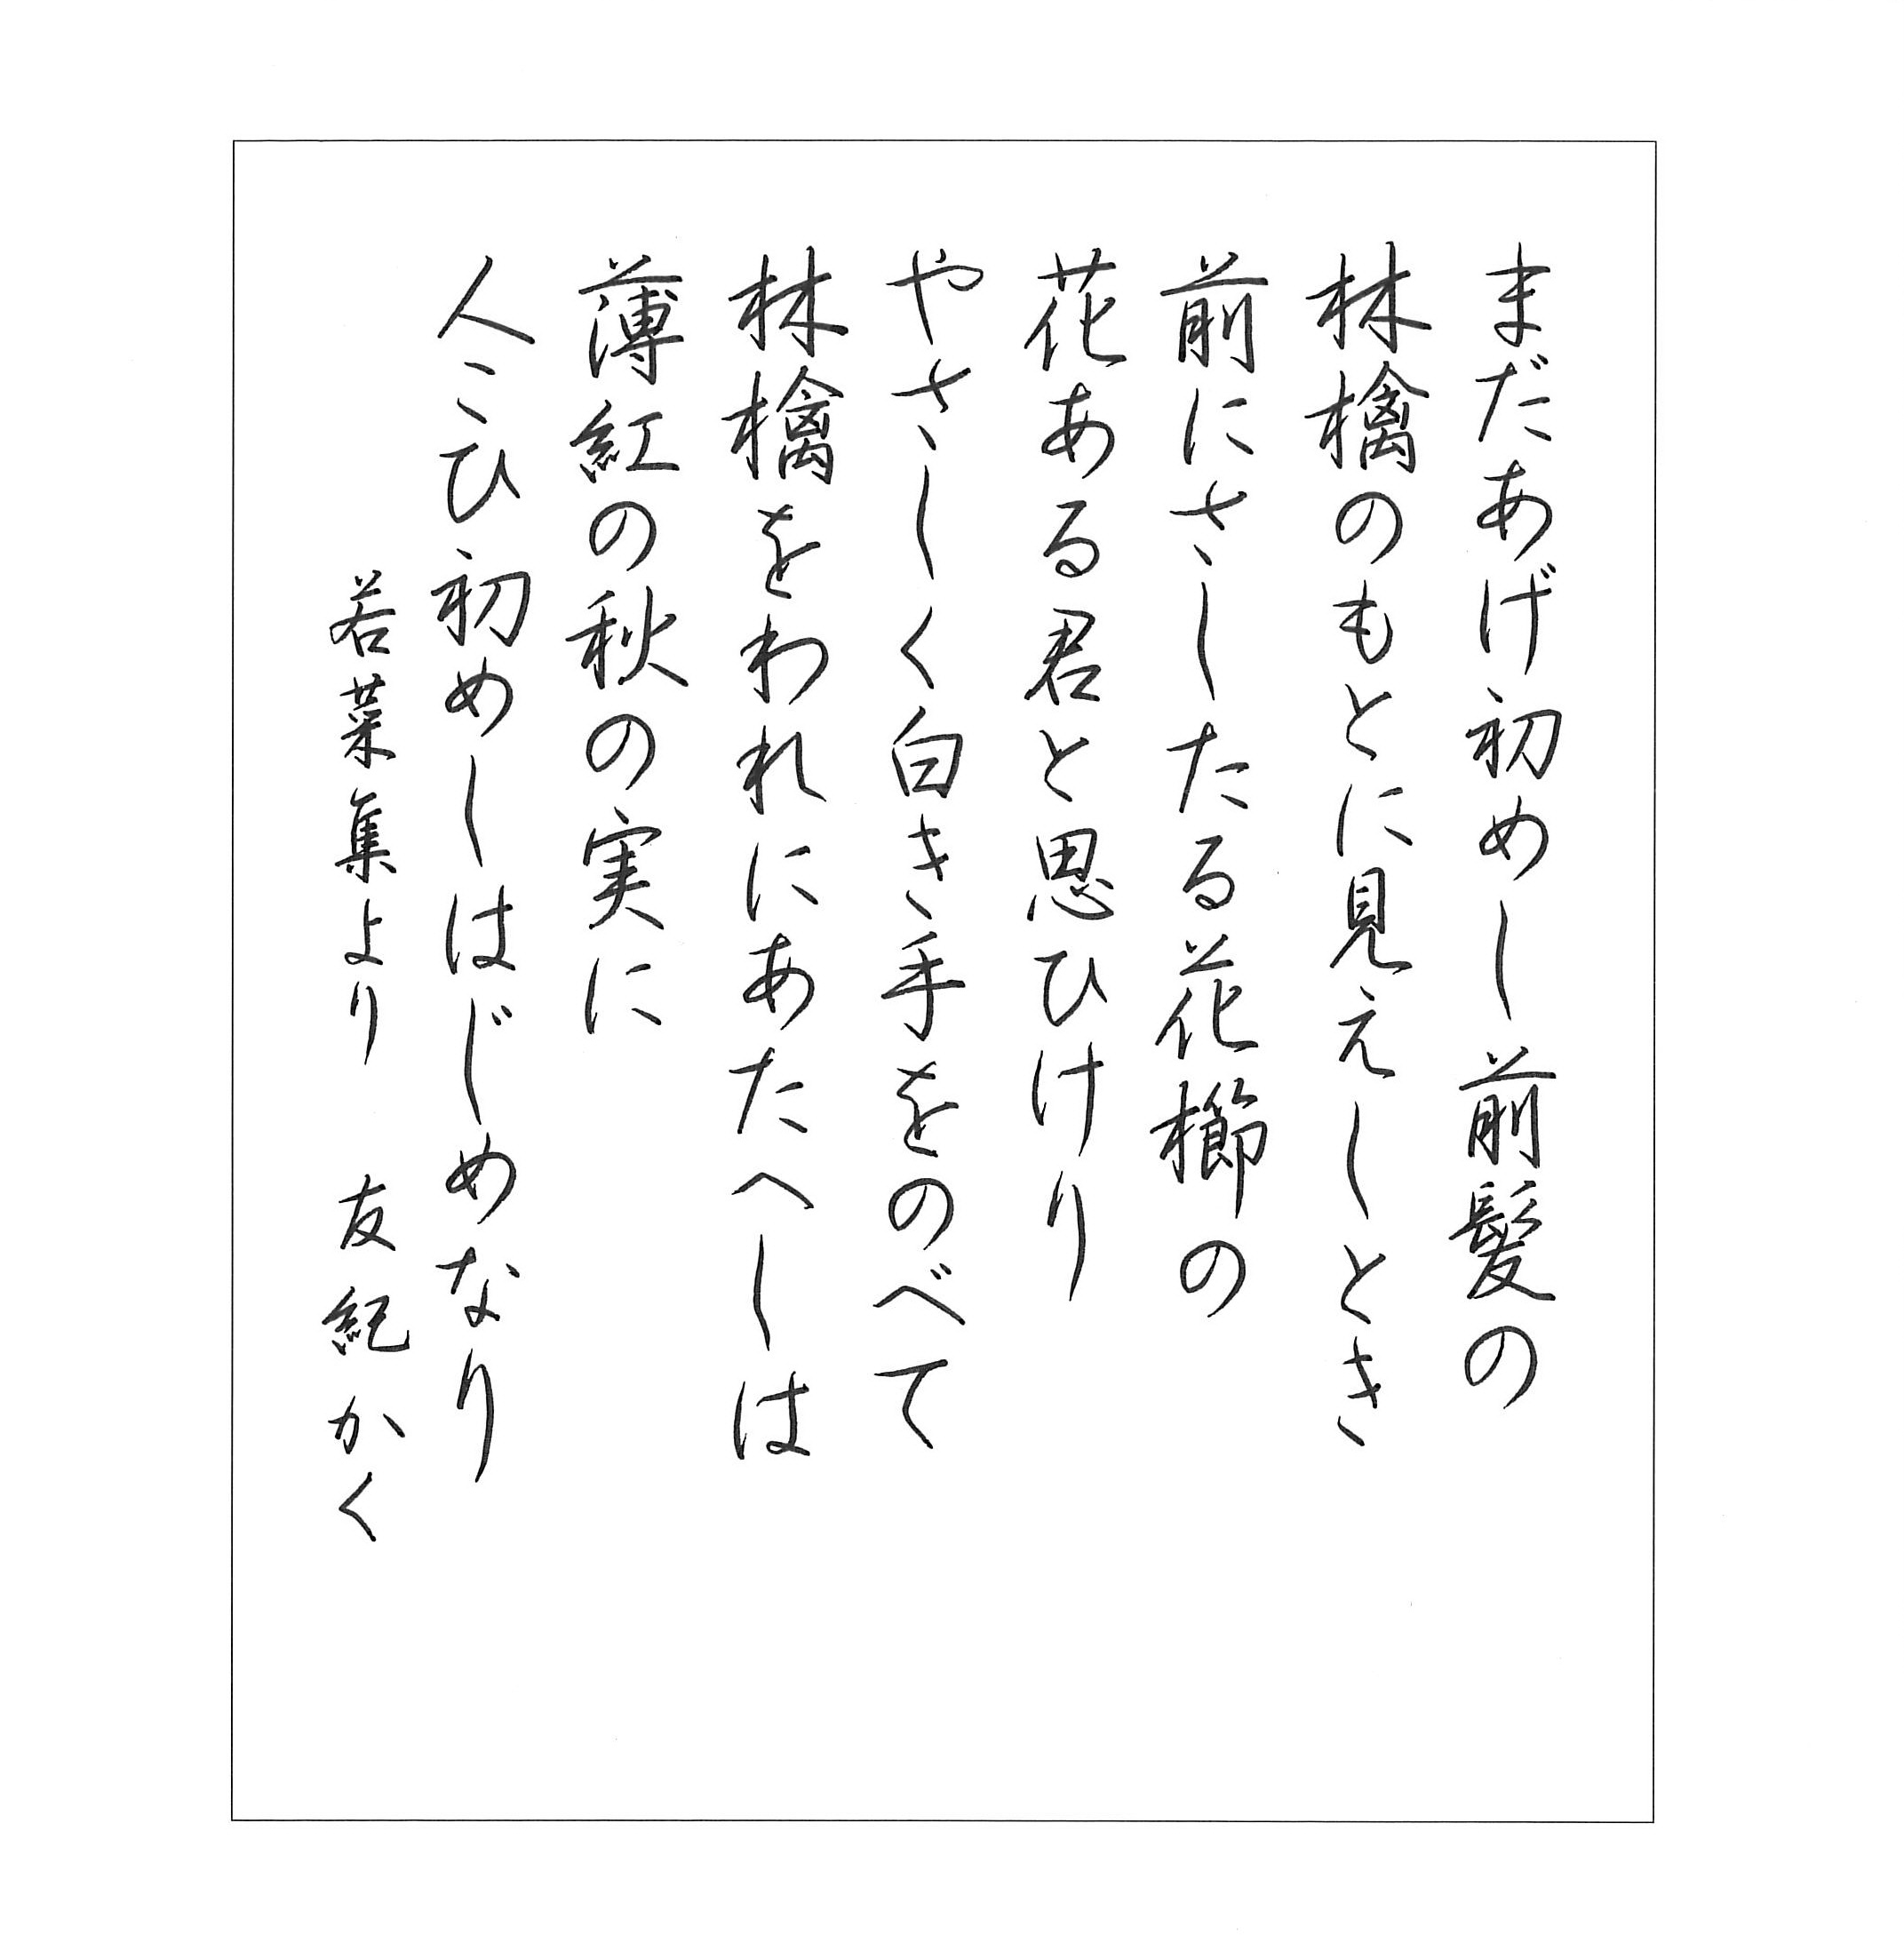 まだあげ初めし前髪の
林檎のもとに見えしとき
前にさしたる花櫛の
花ある君と思ひけり
やさしく白き手をのべて
林檎をわれにあたへしは
薄紅の秋の実に
人こひ初めしはじめなり
若菜集より 友紀かく